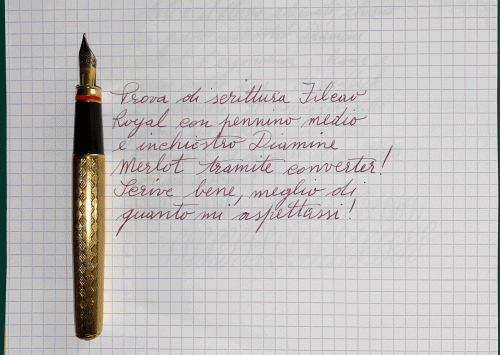 Prova di scrittura Filcao
Royal con pennino medio
e inchiostro Diamine
Merlot tramite converter!
Scrive bene, meglio di
quanto mi aspettassi!